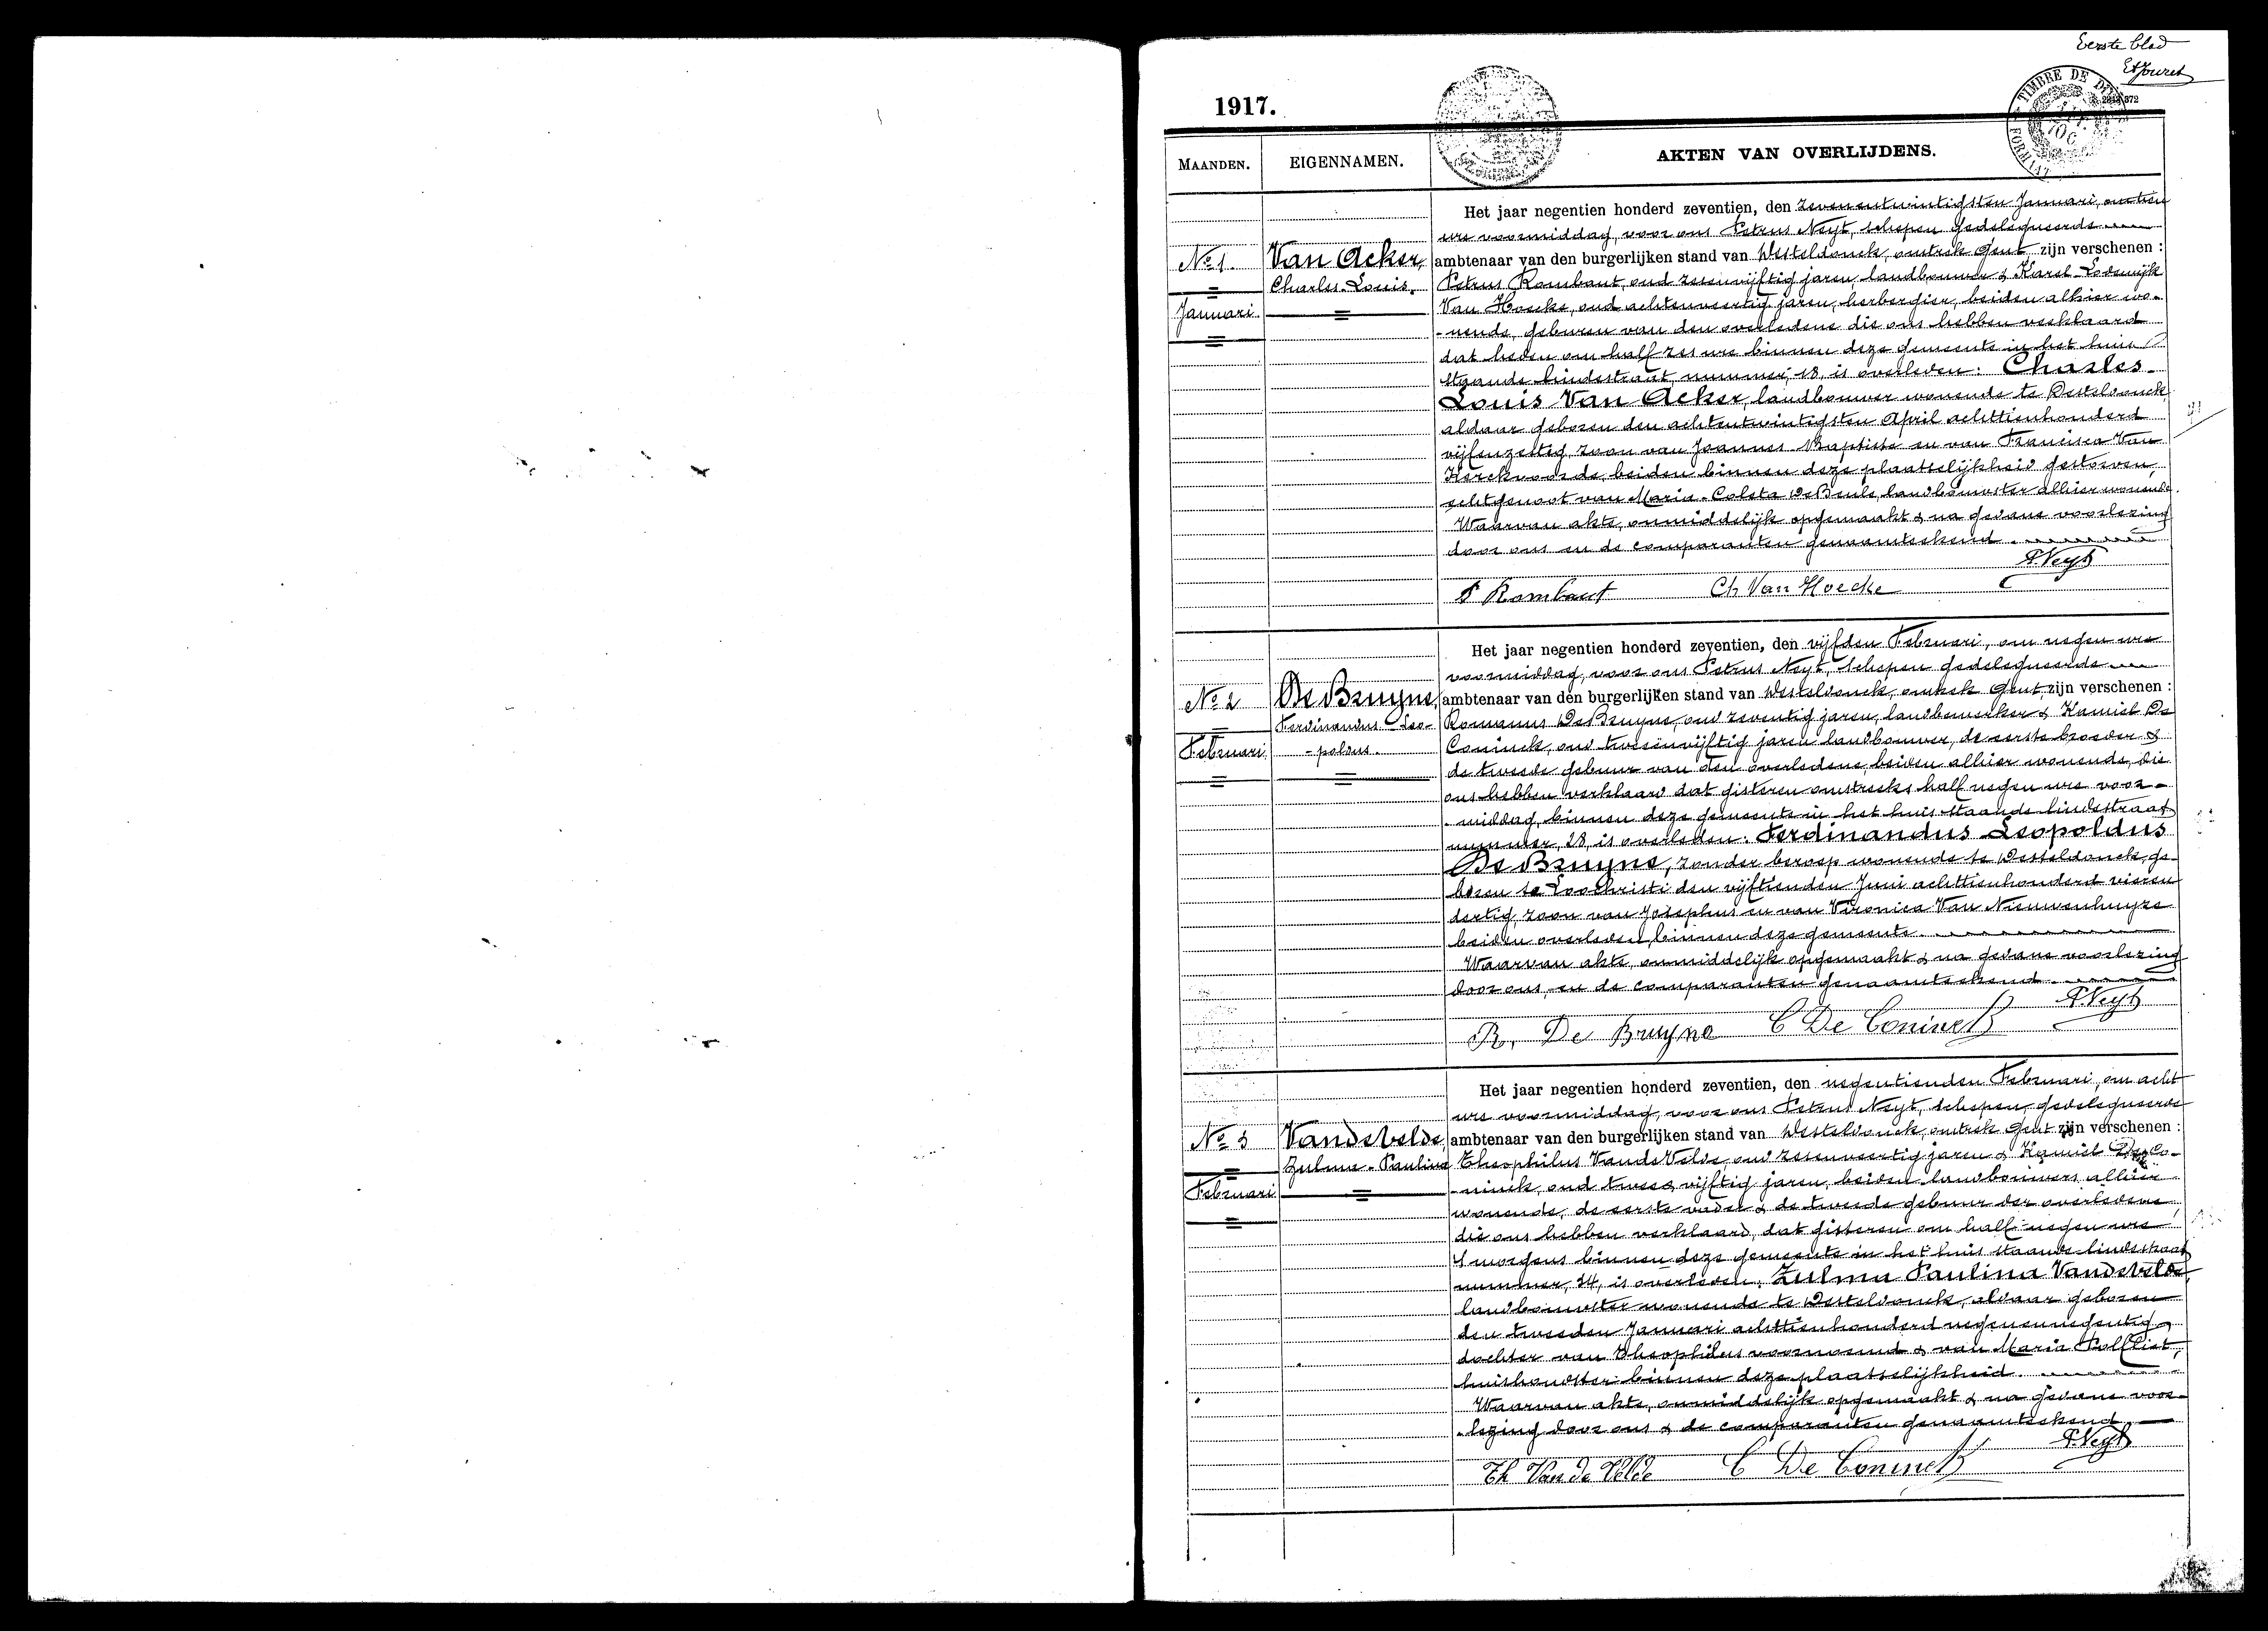 Eerste blad
1917.
TIMBRE DE
MAANDEN.
EIGENNAMEN.
AKTEN VAN OVERLIJDENS.
Het jaar negentien honderd zeventien, den zevenentwintigsten Januari, om tien
ure voormiddag, voor ons Petrus Neyt, schepen gedelegueerde
No 1. Van Acker, ambtenaar van den burgerlijken stand van Desteldonck, omtrek Gent zijn verschenen :
Charles-Louis. Petrus Rombaut, oud zesenvijftig jaren, landbouwer & Karel-Lodewijk
Januari. Van Hoecke, oud achtenveertig jaren, herbergier, beiden alhier wo-
-nende, geburen van den overledene die ons hebben verklaard
dat heden om half zes ure binnen deze gemeente in het huis
staande lindestraat nummer, 18, is overleden: Charles-
Louis Van Acker, landbouwer wonende te Desteldonck,
aldaar geboren den achtentwintigsten April achttienhonderd
vijfenzestig, zoon van Joannes-Baptiste en van Francisca Van
Kerckvoorde, beiden binnen deze plaatselijkheid gestorven,
echtgenoot van Maria-Coleta De Beule, landbouwster alhier wonende.
Waarvan akte, onmiddelijk opgemaakt & na gedane voorlezing
door ons en de comparanten genaamteekend.
P. Neyt
P Rombaut Ch Van Hoecke
Het jaar negentien honderd zeventien, den vijfden Februari, om negen ure
voormiddag, voor ons Petrus Neyt, schepen gedelegueerde
No 2 De Bruyne, ambtenaar van den burgerlijken stand van Desteldonck, omtrek Gent, zijn verschenen :
Ferdinandus-Leo- Romanus De Bruyne, oud zeventig jaren, landbewerker & Kamiel De
Februari -poldus. Coninck, oud tweeënvijftig jaren landbouwer, de eerste broeder &
de tweede gebuur van den overledene, beiden alhier wonende, die
ons hebben verklaard dat gisteren omstreeks half negen ure voor-
-middag, binnen deze gemeente in het huis staande lindestraat
nummer, 28, is overleden: Ferdinandus Leopoldus
De Bruyne, zonder beroep wonende te Desteldonck, ge-
boren te Loochristi den vijftienden Juni achttienhonderd vieren
dertig, zoon van Josephus en van Vironica Van Nieuwenhuyze
beiden overleden binnen deze gemeente.
Waarvan akte, onmiddelijk opgemaakt & na gedane voorlezing
door ons, en de comparanten genaamteekend.
P. Neyt
R. De Bruyne C De Coninck
Het jaar negentien honderd zeventien, den negentienden Februari, om acht
ure voormiddag, voor ons Petrus Neyt, schepen, gedelegueerde
No 3 Vandevelde, ambtenaar van den burgerlijken stand van Desteldonck, omtrek Gent zijn verschenen :
Zulma-Paulina Theophilus VandeVelde, oud zesenveertig jaren & Kamiel De Co-
Februari -ninck, oud twee & vijftig jaren, beiden landbouwers alhier
wonende, de eerste vader & de tweede gebuur der overledene,
die ons hebben verklaard, dat gisteren om half negen ure
's morgens binnen deze gemeente in het huis staande lindestraat
nummer, 24, is overleden: Zulma Paulina Vandevelde,
landbouwster wonende te Desteldonck, aldaar geboren
den tweeden Januari achttienhonderd negenennegentig,
dochter van Theophilus voornoemd & van Maria Polfliet,
huishoudster binnen deze plaatselijkheid.
Waarvan akte, onmiddelijk opgemaakt & na gedane voor-
-lezing door ons & de comparanten genaamteekend.
P. Neyt
Th Van de Velde C De Coninck